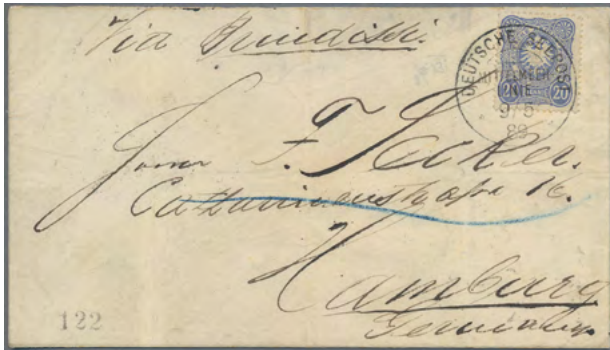 Via Brindisi.
DEUTSCHE SEEPOST
LINIE
9/5
88
20 20
Herrn F.Ecker.
Catharinenstraße 16.
Hamburg
Germany.
122